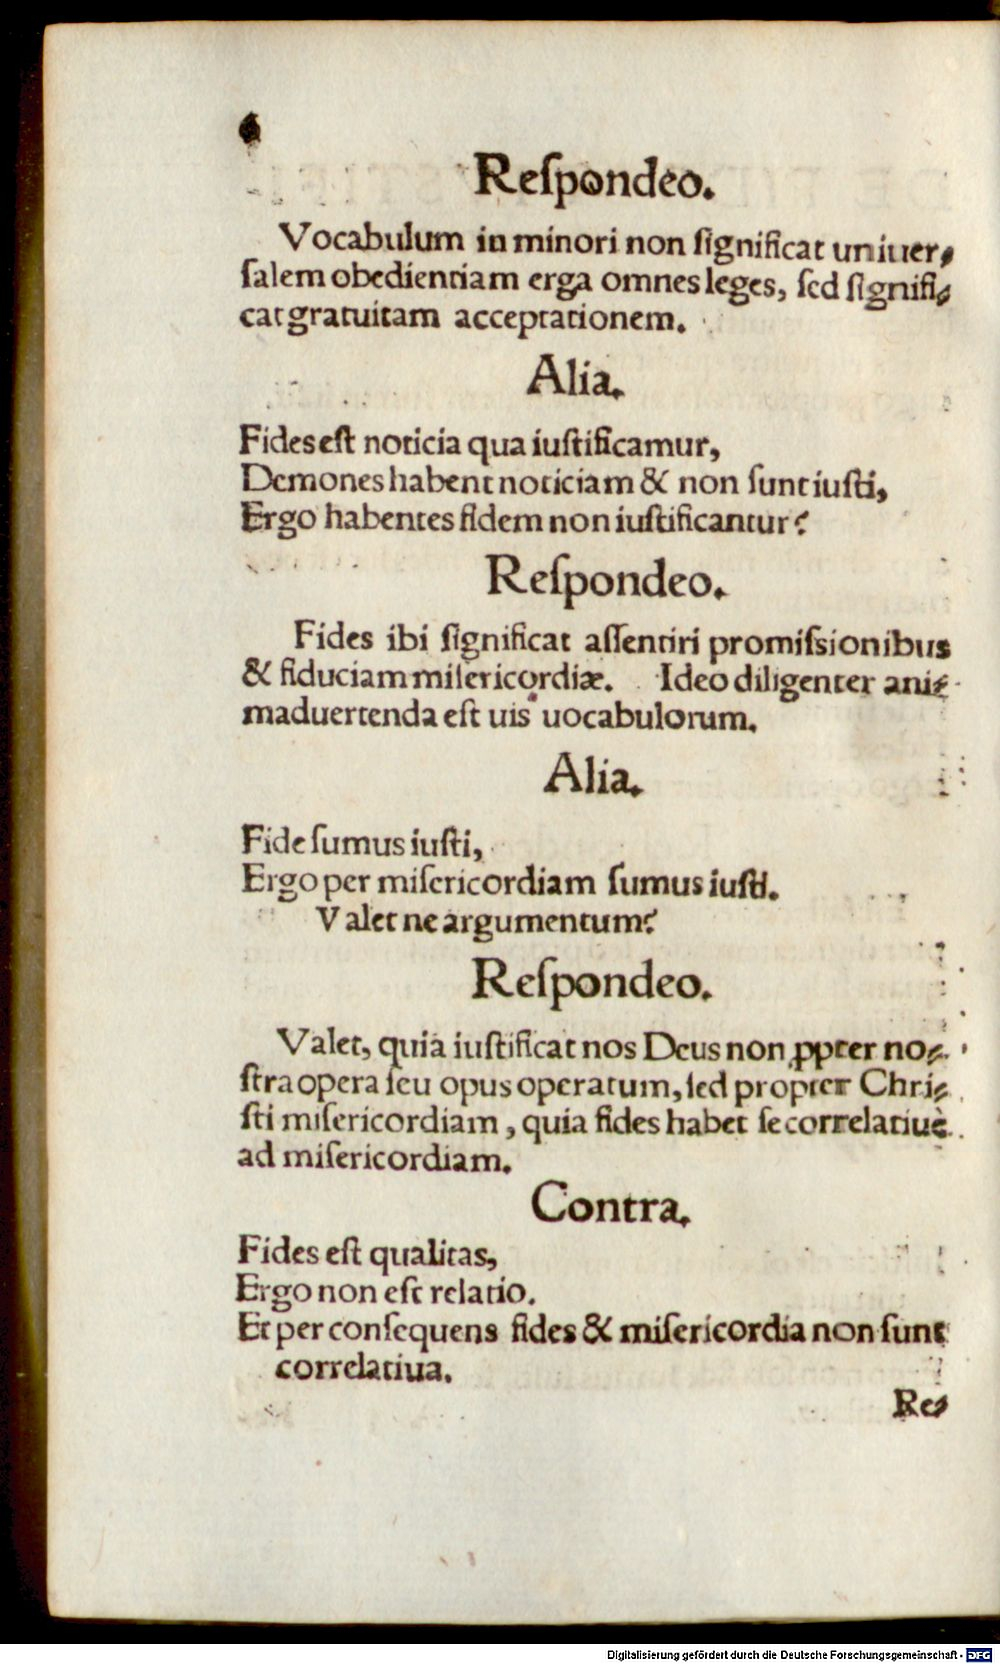 6
Reſpondeo.
Vocabulum in minori non ſignificat uniuer⸗
ſalem obedientiam erga omnes leges, ſed ſignifi⸗
cat gratuitam acceptationem.
Alia.
Fides eſt noticia qua iuſtificamur,
Demones habent noticiam & non ſunt iuſti,
Ergo habentes fidem non iuſtificantur?
Reſpondeo.
Fides ibi ſignificat aſſentiri promiſsionibus
& fiduciam miſericordiæ. Ideo diligenter ani⸗
maduertenda eſt uis uocabulorum.
Alia.
Fide ſumus iuſti,
Ergo per miſericordiam ſumus iuſti.
Valet ne argumentum?
Reſpondeo.
Valet, quia iuſtificat nos Deus non ꝓpter no⸗
ſtra opera ſeu opus operatum, ſed propter Chri⸗
ſti miſericordiam, quia fides habet ſe correlatiuè
ad miſericordiam.
Contra.
Fides eſt qualitas,
Ergo non eſt relatio.
Et per conſequens fides & miſericordia non ſunt
correlatiua.
Re⸗
Digitalisierung gefördert durch die Deutsche Forschungsgemeinschaft - DFG